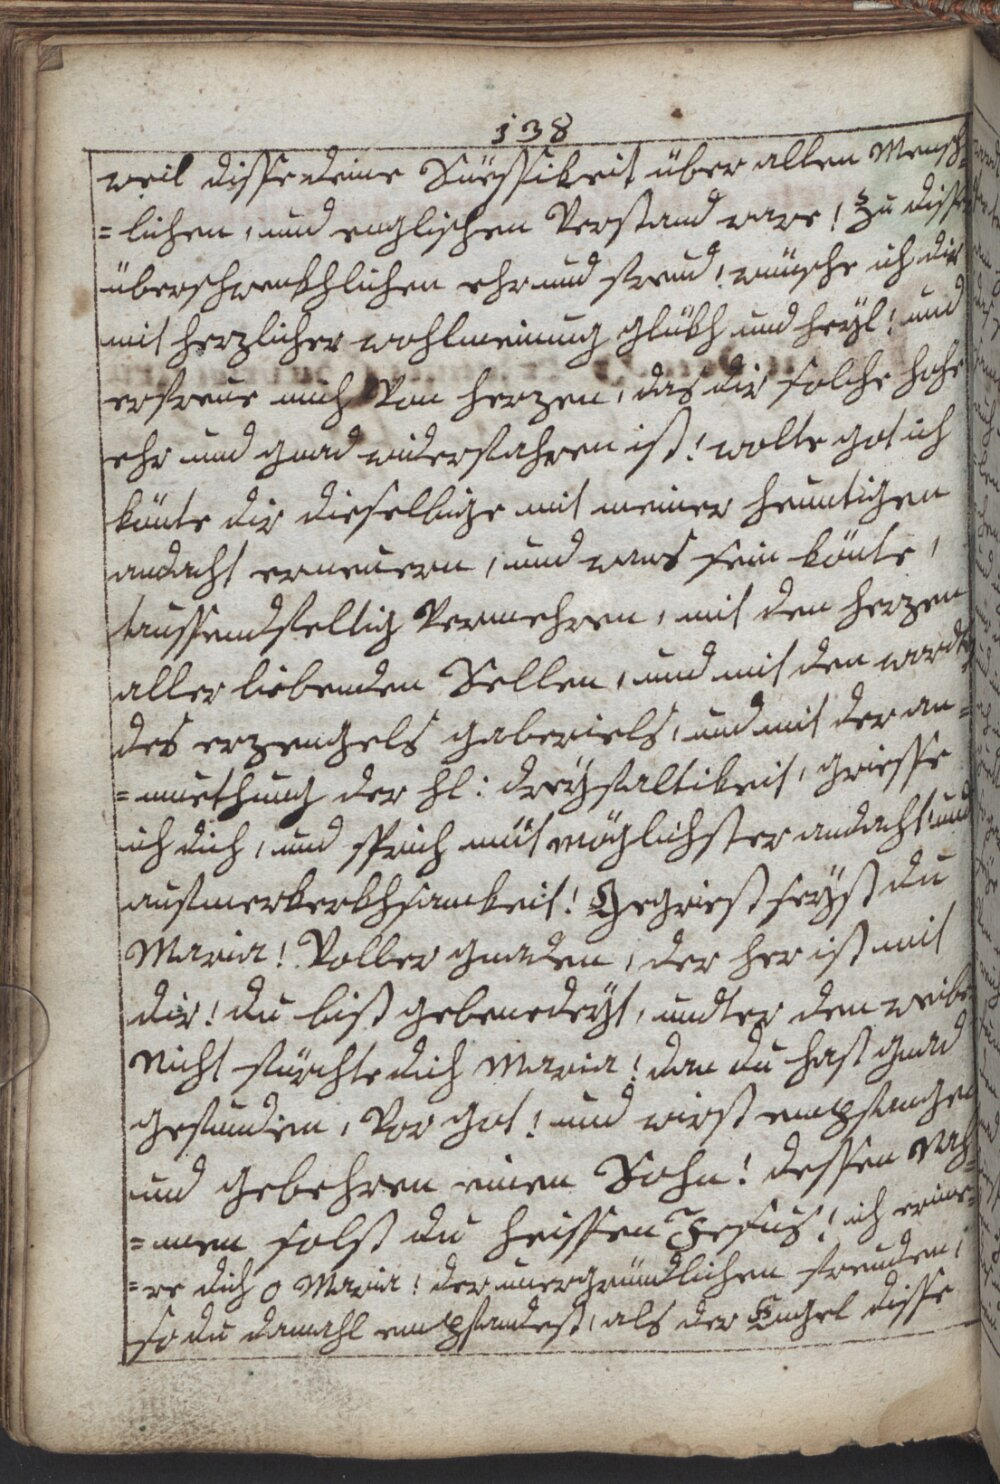 138
weil disse deine Süessikeit über allen Mensch
=lichen, und englischen Verstand ware! Zu disse
überschwenkhlichen ehr und freud, wünsche ich dir
mit herzlicher wohlmeinung glükh und heyl! und
erfreue mich Von herzen, das dir solche hohe
ehr und gnad widerfahren ist! wolte got ich
könte dir dieselbige mit meiner heuntigen
andacht erneuern, und wans sein könte,
taussendfeltig Vermehren, mit den herzen
aller liebenden Sellen, und mit den worten
des erzengels gaberiels, und mit der an=
=muethung der hl: dreyfaltikeit, griesse
ich dich, und sprich mit möglichster andacht und
aufmerkerkhsamkeit! Gegriest seyst du
Maria! Voller gnaden, der her ist mit
dir! du bist gebenedeyt, undter den weibe
Nicht fürchte dich Maria! dan du hast gnad
gefunden, Vor got! und wirst empfangen
und gebehren einen Sohn! dessen Nah=
=men solst du heissen Jesus! ich erine=
=re dich o Maria! der unergründlichen freuden,
so du damahl empfandest, als der Engel disse